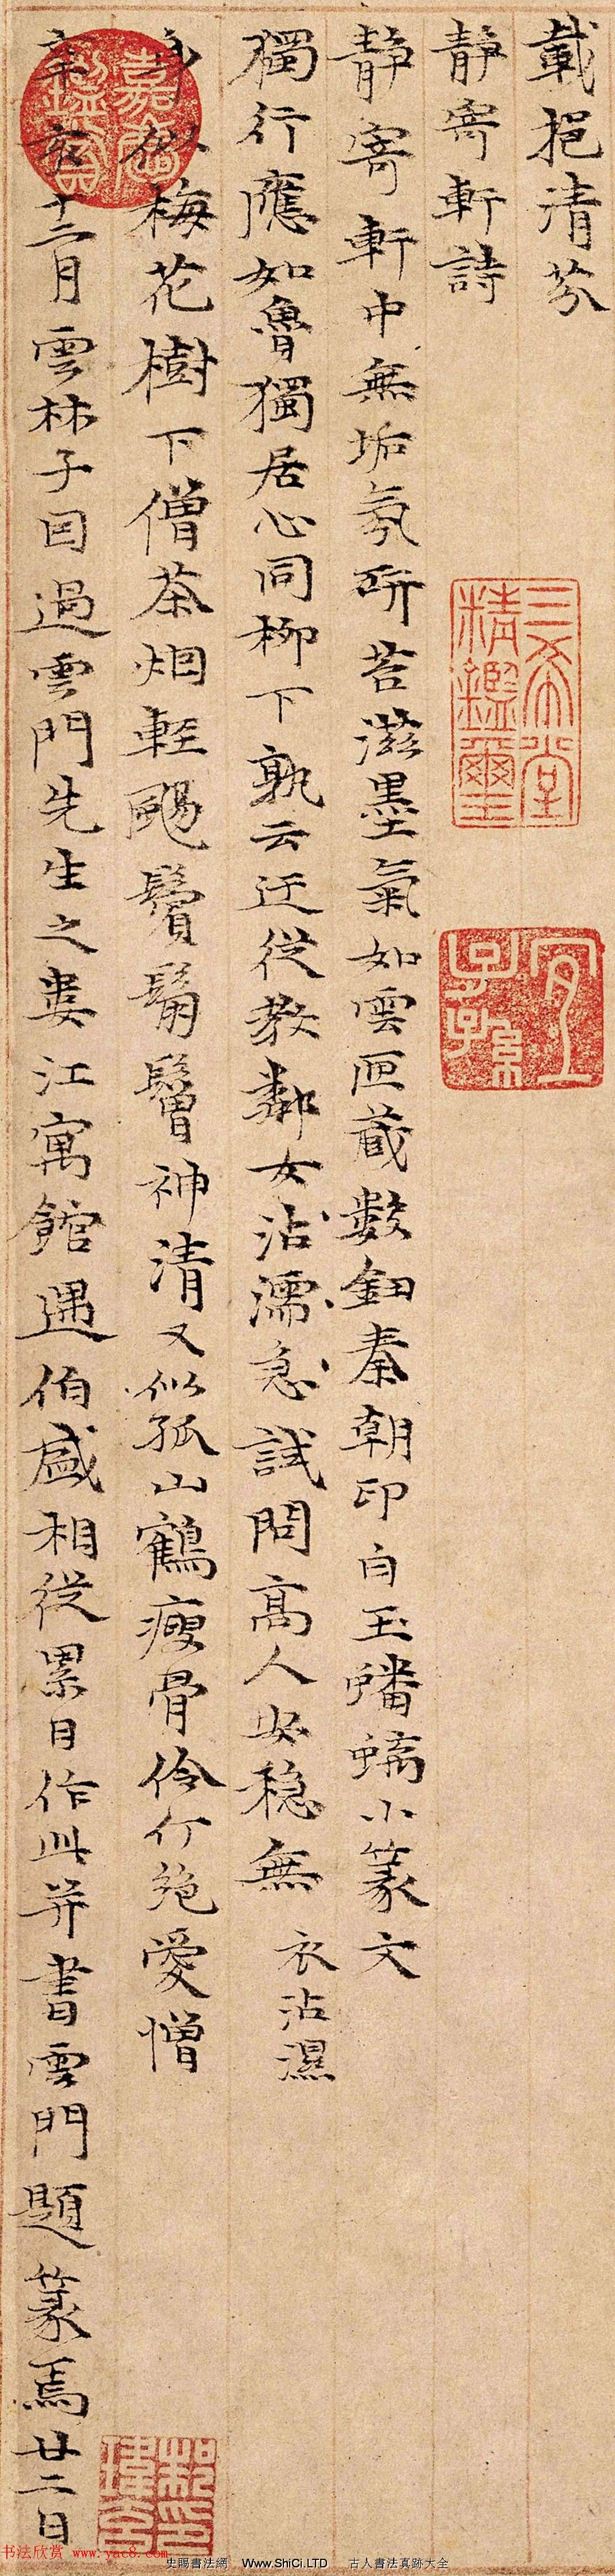 載挹清芬
静寄軒詩
静寄軒中無垢氛研苔滋墨氣如雲匣藏數鈕秦朝印白玉蟠螭小篆文
獨行應如魯獨居心同柳下孰云迂從教鄰女沾濡急試問高人安穩無
衣沾濕
身似梅花樹下僧茶烟輕颺鬢鬅鬙神清又似孤山鶴瘦骨伶仃絶愛憎
辛亥十二月雲林子因過雲門先生之婁江寓館遇伯盛相從累日作此并書雲門題篆焉廿二日
三希堂精鑑璽
宜子孫
嘉慶鑑賞
书法欣赏 www.yac8.com
史賜書法網 Www.ShiCi.LTD 古人書法真跡大全